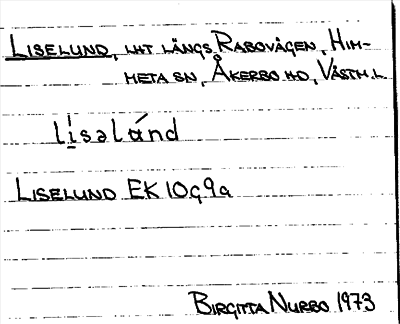 LISELUND, LHT LÄNGS RABOVÄGEN, HIM-
META SN, ÅKERBO HD, VÄSTM.L.
li̱səlánd
LISELUND EK 10G9a
BIRGITTA NURBO 1973